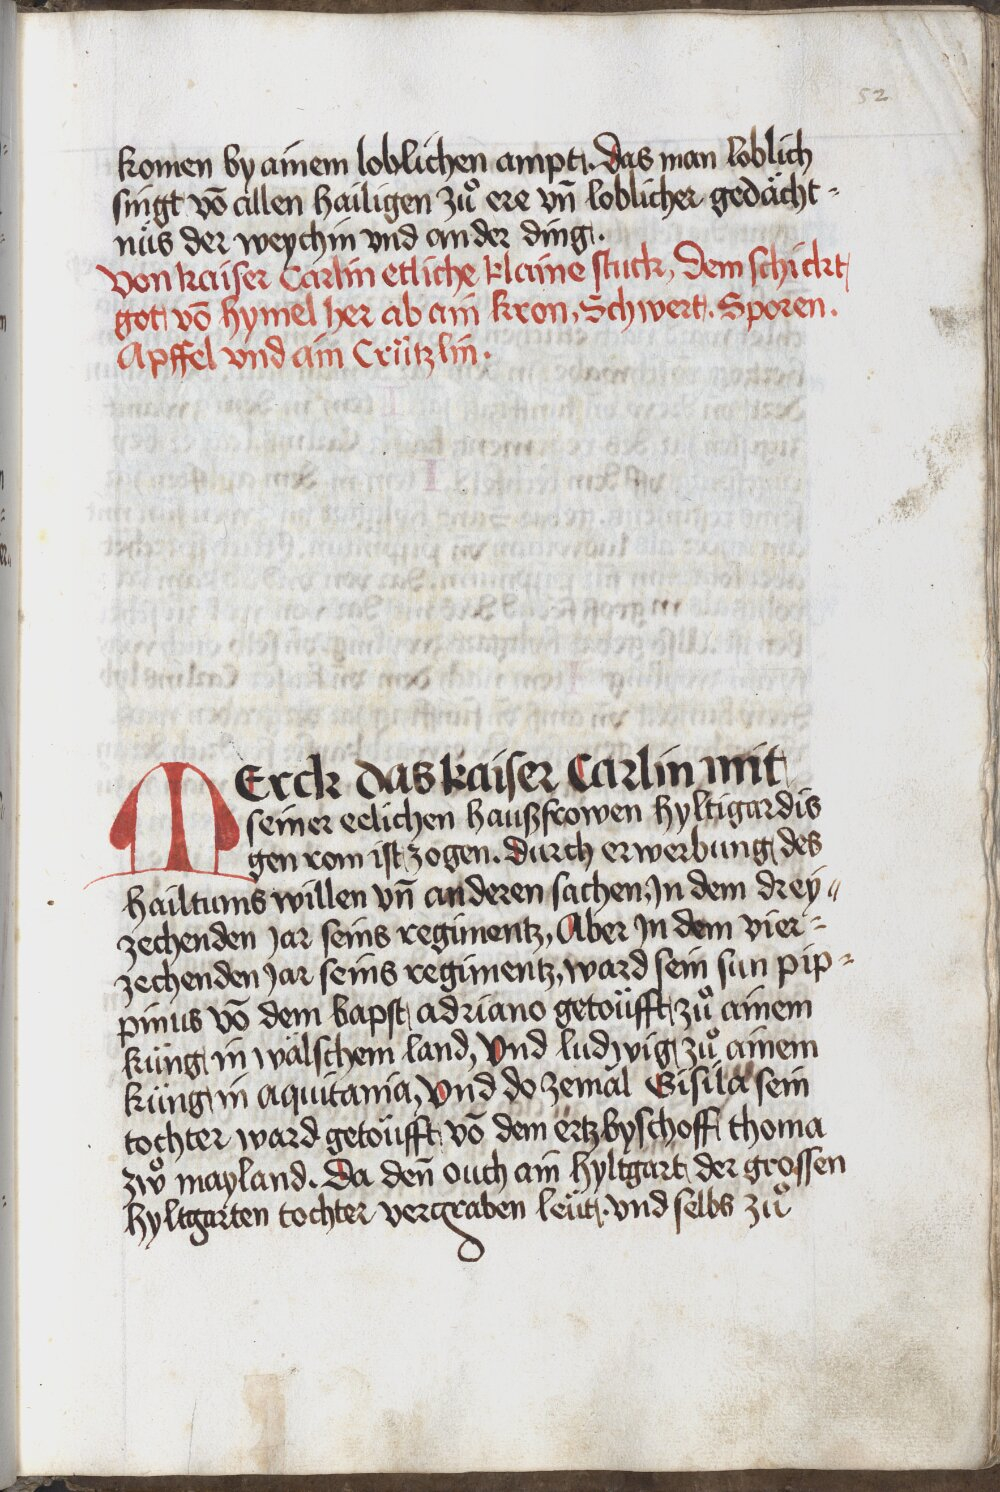 52
komen by ainem loblichen ampt. Das man loblich
singt vō allen hailigen zů ere vn̄ loblicher gedächt-
nüs der weychin vnd ander ding.
Von kaiser Carlin etliche klaine stuck, Dem schickt
got vō hymel her ab ain kron, Schwert. Sporen.
Apffel vnd ain Crützlin.
MErck das kaiser Carlin mit
seiner eelichen haußfrowen hyltigardis
gen rom ist zogen. Durch erwerbung des
hailtums willen vn̄ anderen sachen, In dem drey-
zechenden Jar seins regimentz, Aber In dem vier-
zechenden Jar seins regimentz, ward sein sun pip-
pinus vō dem bapst adriano getoüfft zů ainem
küng in wälschem land, Vnd ludwig zů ainem
küng in aquitania, Vnd do zemāl Gisila sein
tochter ward getoüfft vō dem ertzbyschoff thoma
zwͦ mayland. Da den̄ ouch ain hyltgart der grossen
hyltgarten tochter vergraben leüt. vnd selbs zů